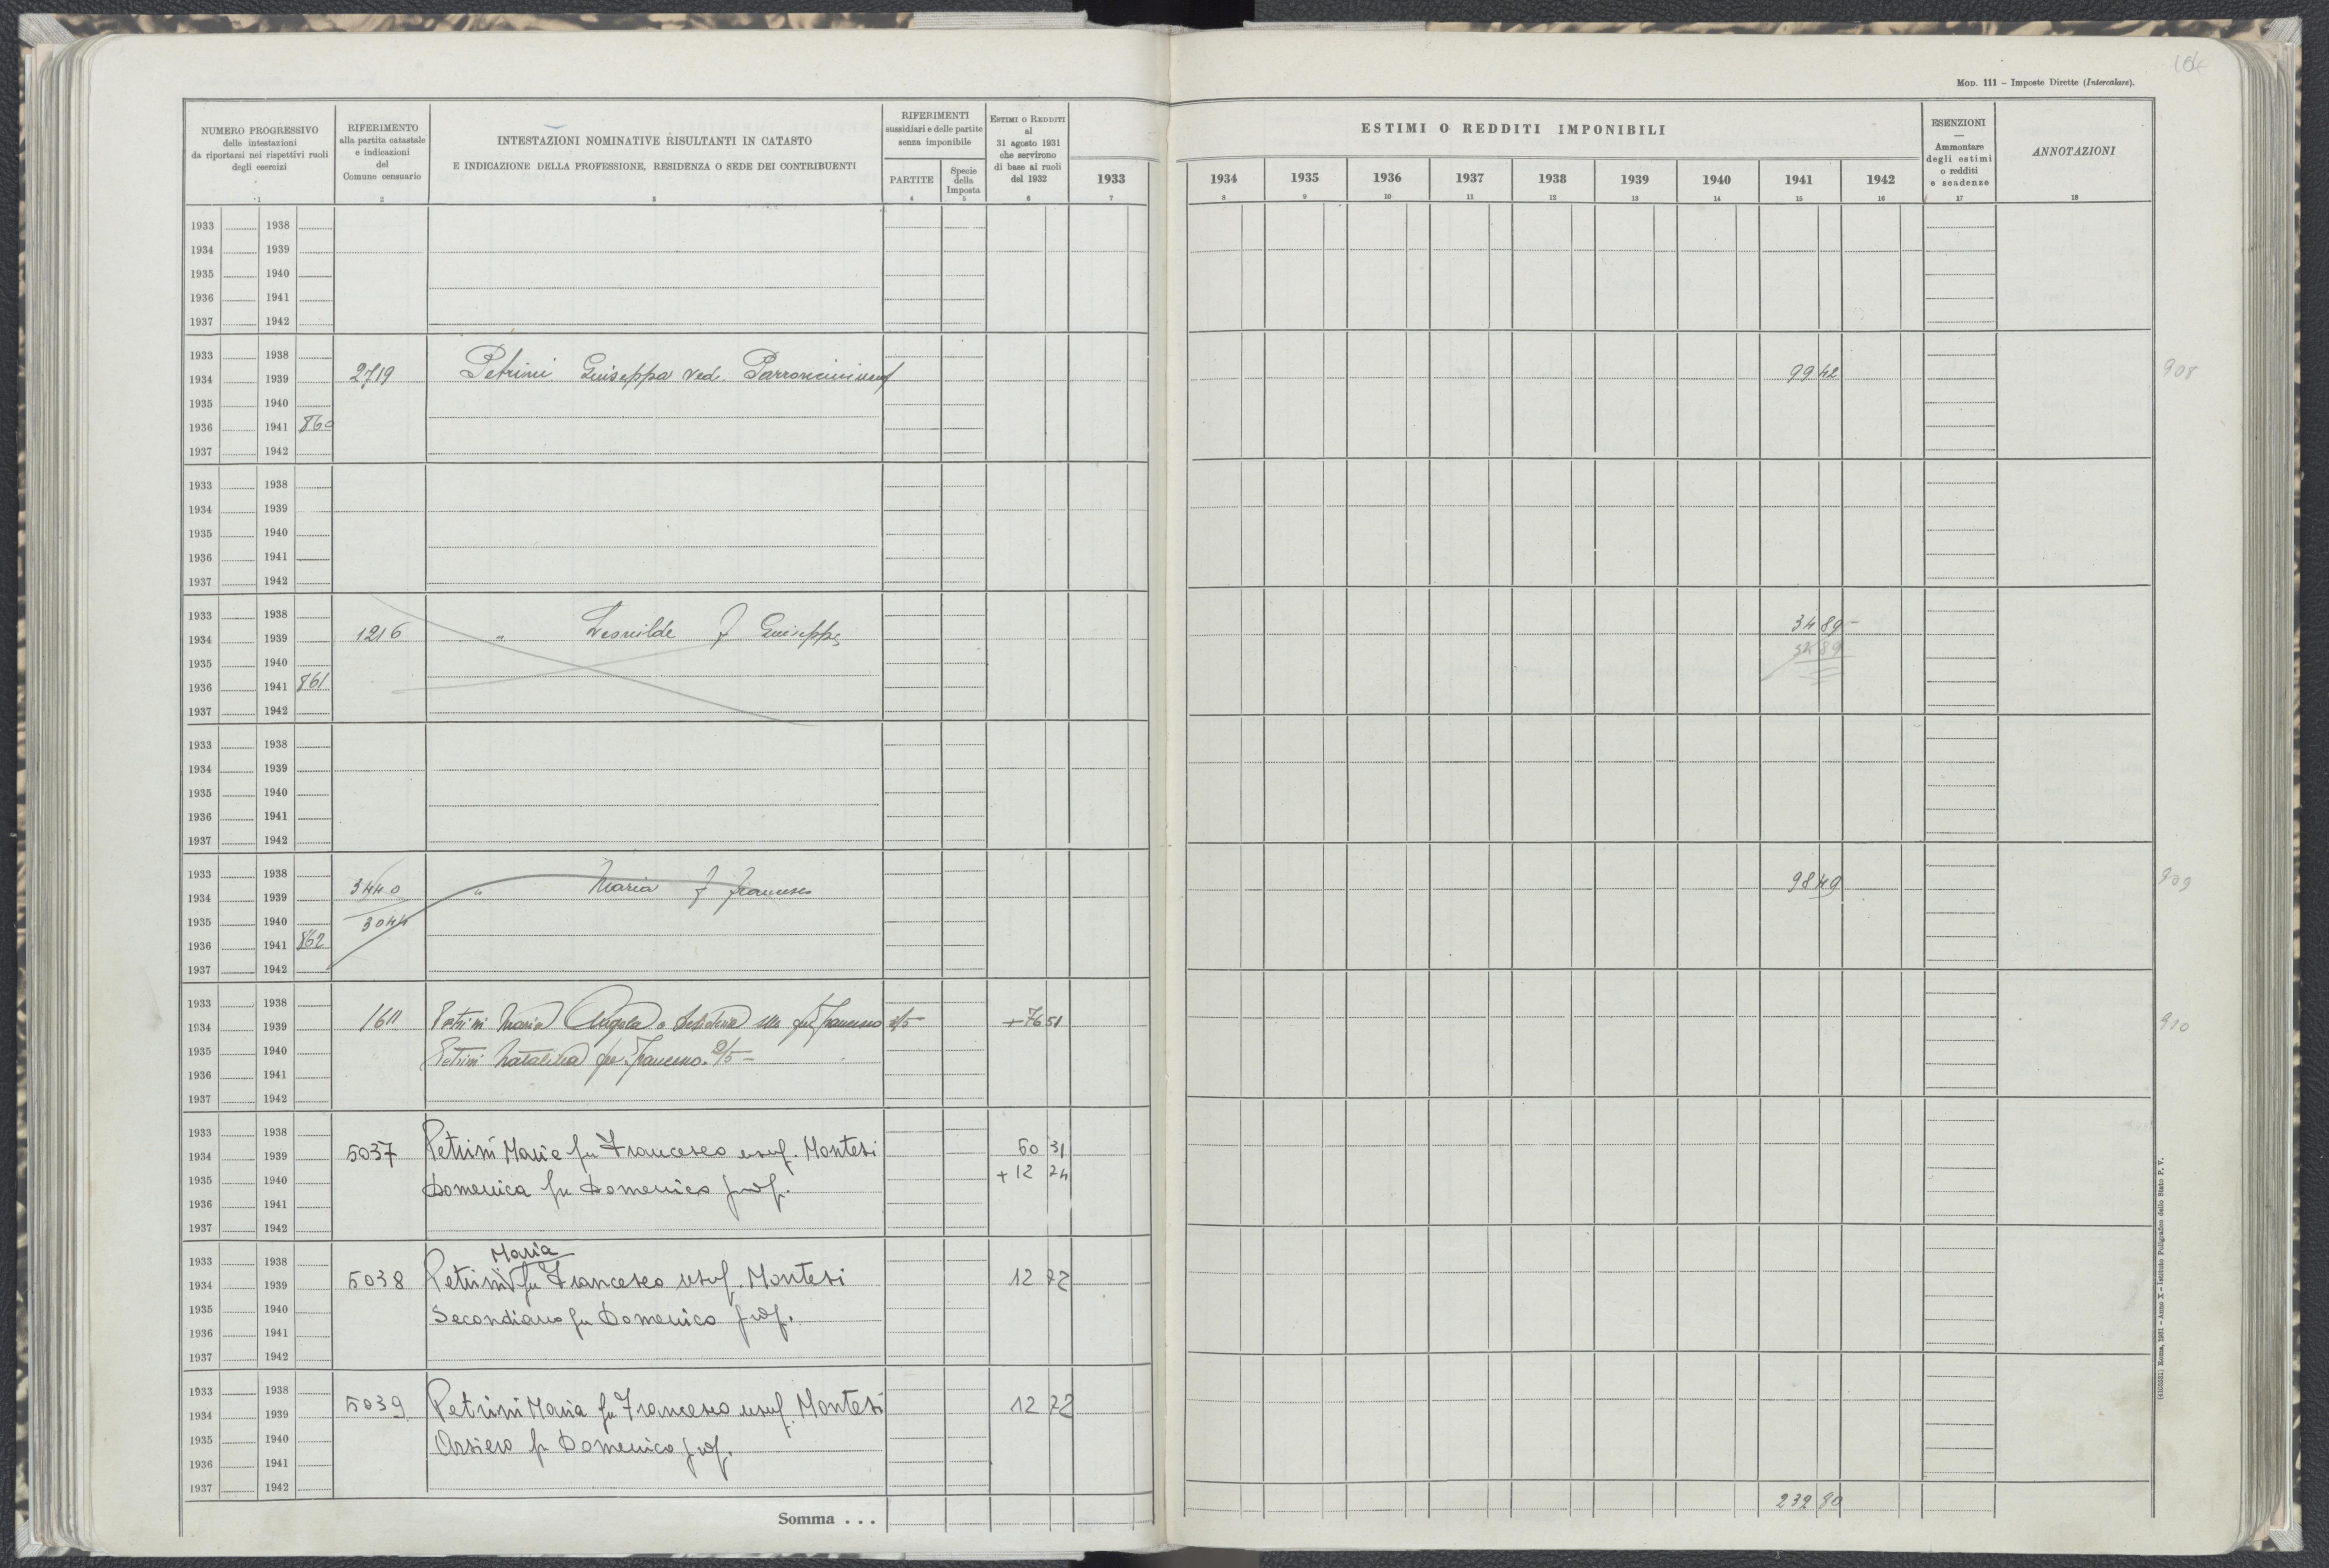 164
MOD. 111 – Imposte Dirette (Intercalare).
NUMERO PROGRESSIVO
delle intestazioni
da riportarsi nei rispettivi ruoli
degli esercizi
1
RIFERIMENTO
alla partita catastale
e indicazioni
del
Comune censuario
2
INTESTAZIONI NOMINATIVE RISULTANTI IN CATASTO
E INDICAZIONE DELLA PROFESSIONE, RESIDENZA O SEDE DEI CONTRIBUENTI
3
RIFERIMENTI
sussidiari e delle partite
senza imponibile
PARTITE
4
Specie
della
Imposta
5
ESTIMI O REDDITI
al
31 agosto 1931
che servirono
di base ai ruoli
del 1932
6
1933
7
ESTIMI O REDDITI IMPONIBILI
1934 1935 1936 1937 1938 1939 1940 1941 1942
8 9 10 11 12 13 14 15 16
ESENZIONI
—
Ammontare
degli estimi
o redditi
e scadenze
17
ANNOTAZIONI
18
1933 1938
1934 1939
1935 1940
1936 1941
1937 1942
1933 1938
1934 1939 2719 Petrini Giuseppa ved. 99 42 908
1935 1940
1936 1941 860
1937 1942
1933 1938
1934 1939
1935 1940
1936 1941
1937 1942
1933 1938
1934 1939 1216 " Leonilde f Giuseppe 34 89 –
1935 1940 34 89
1936 1941 861
1937 1942
1933 1938
1934 1939
1935 1940
1936 1941
1937 1942
1933 1938
1934 1939 3440 " Maria f Francesco 98 49 909
1935 1940 3044
1936 1941 862
1937 1942
1933 1938
1934 1939 1611 Petrini Maria Angela e fu Francesco 3/5 + 76 51 910
1935 1940 Petrini Natalina fu Francesco 2/5 –
1936 1941
1937 1942
1933 1938
1934 1939 5037 Petrini Maria fu Francesco usuf. Montesi 60 31
1935 1940 Domenica fu Domenico prof. + 12 24
1936 1941
1937 1942
1933 1938 Maria
1934 1939 5038 Petrini fu Francesco usuf. Montesi 12 22
1935 1940 Secondiano fu Domenico prof.
1936 1941
1937 1942
1933 1938
1934 1939 5039 Petrini Maria fu Francesco usuf. Montesi 12 22
1935 1940 Arsiero fu Domenico prof.
1936 1941
1937 1942
Somma . . . 232 80
(4103531) Roma, 1931 – Anno X – Istituto Poligrafico dello Stato P. V.